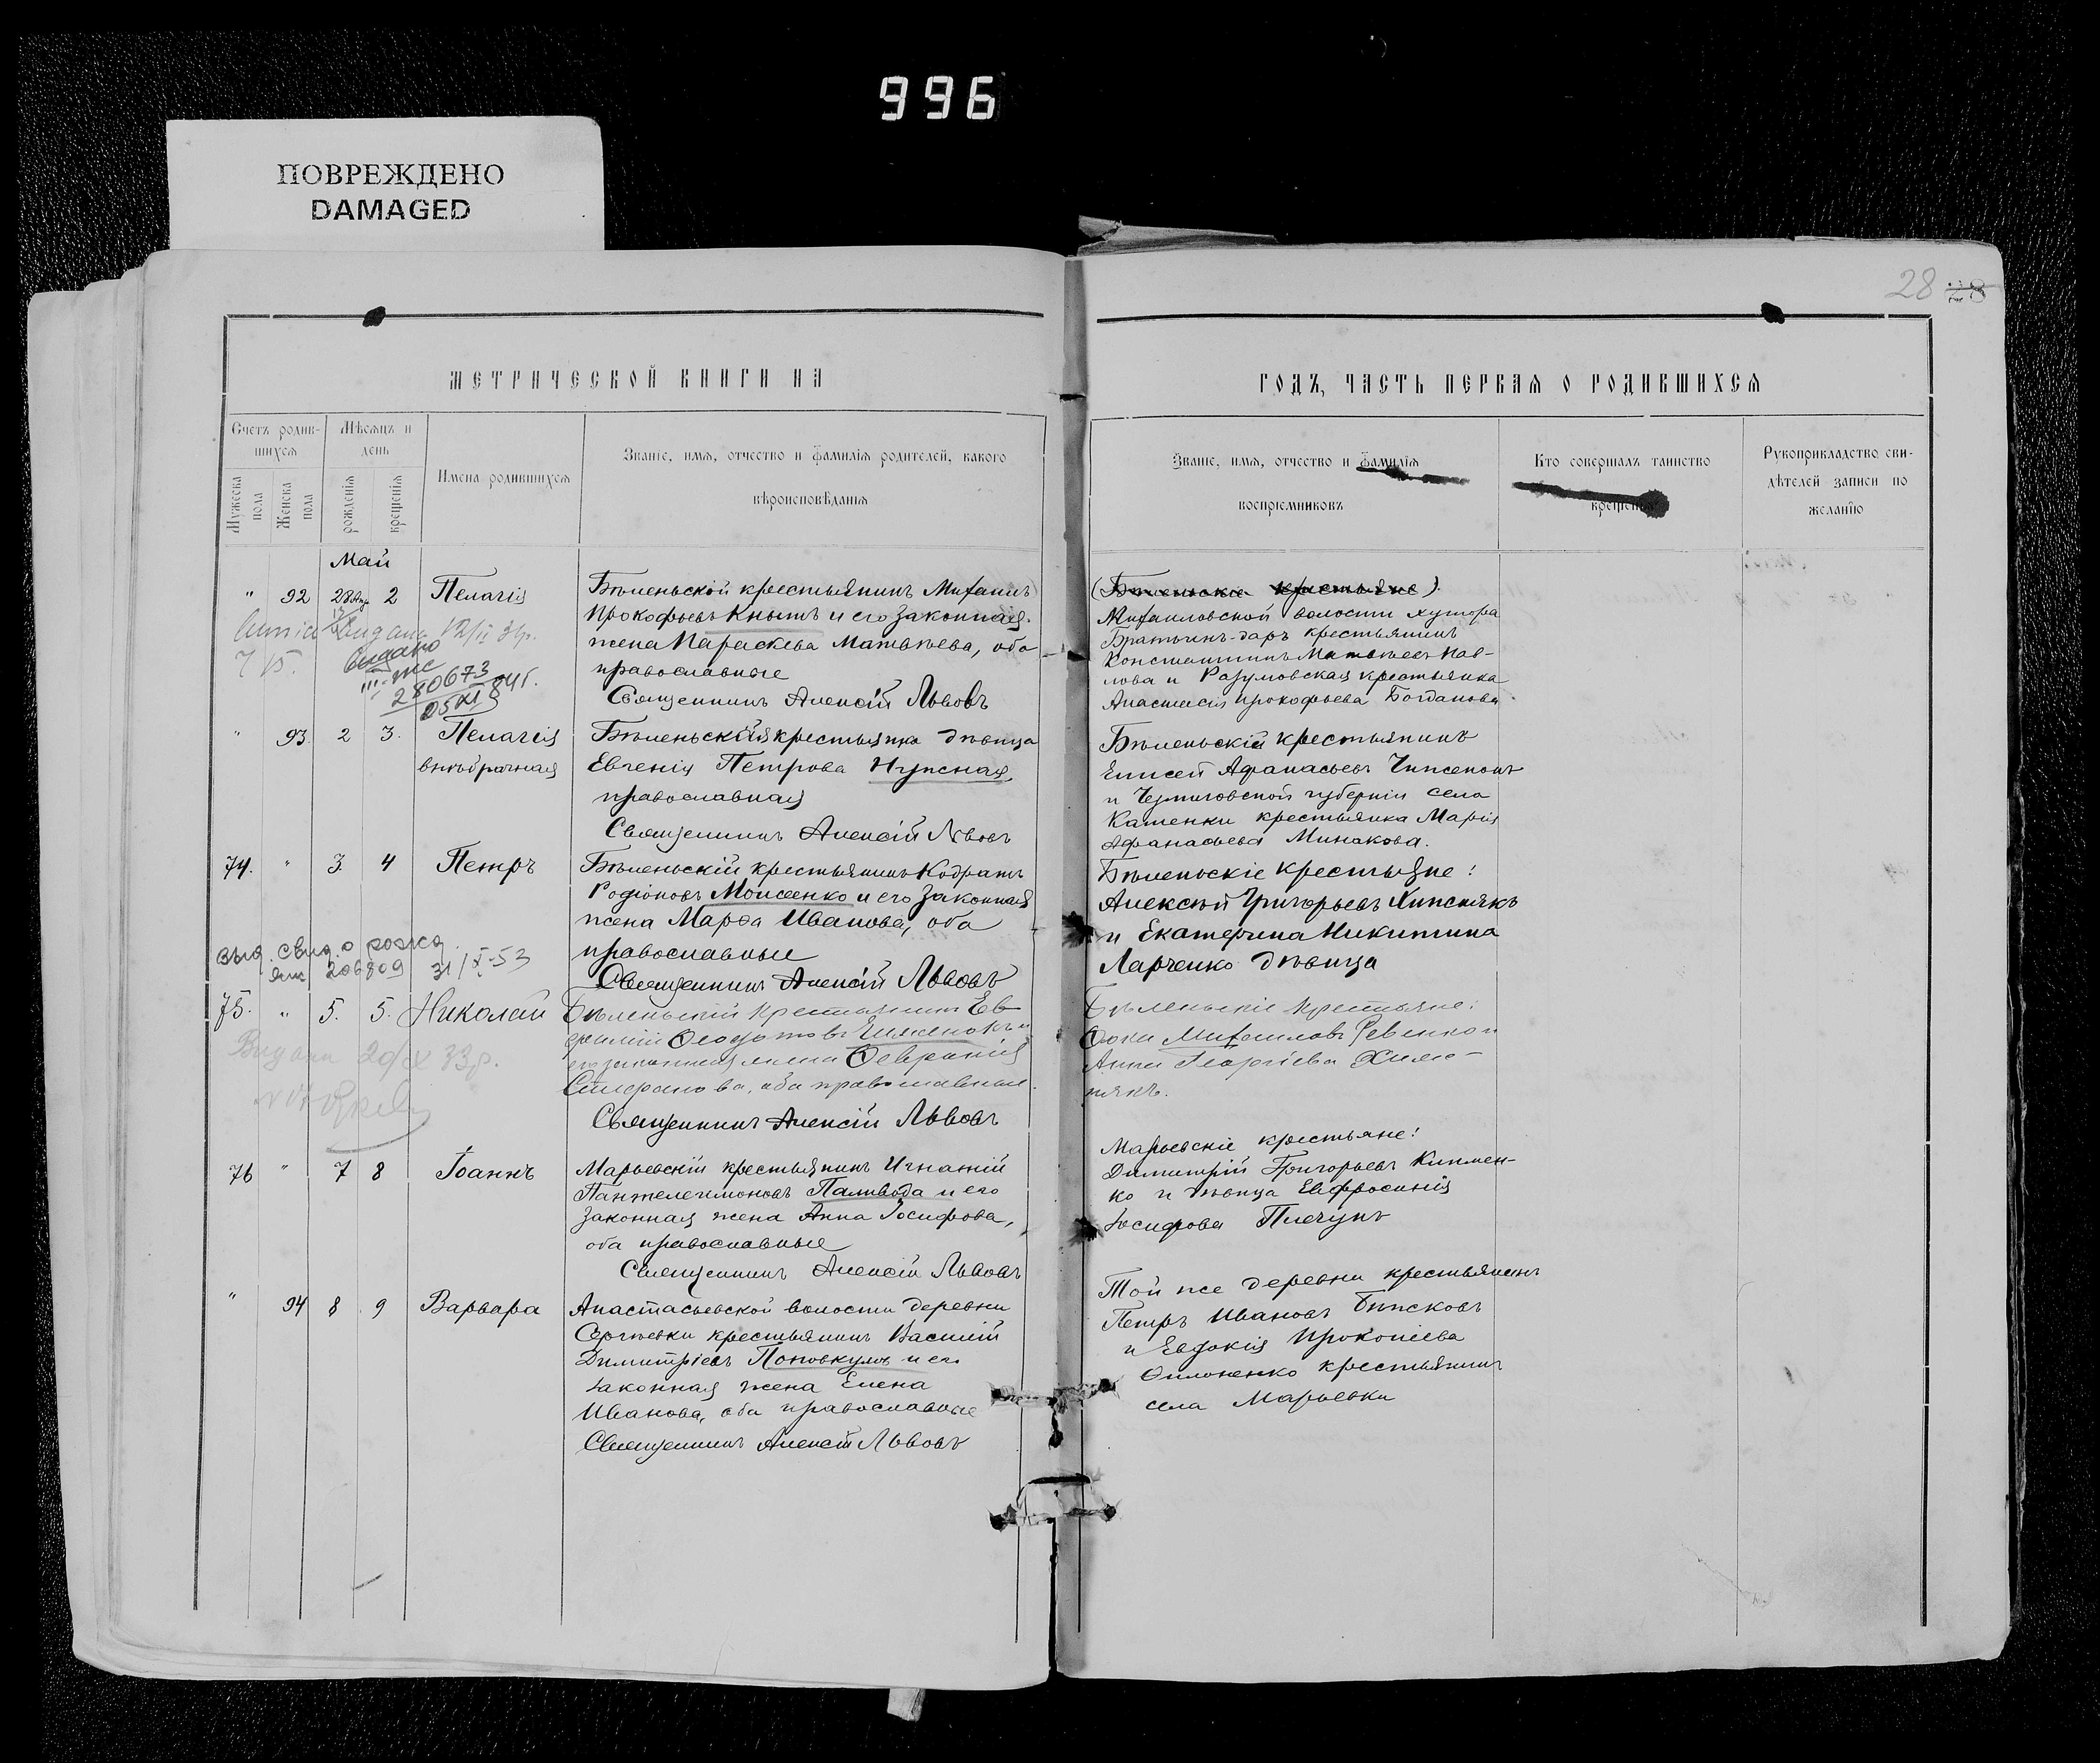 996
ПОВРЕЖДЕНО
DAMAGED
28
МЕТРИЧЕСКОЙ КНИГИ НА
Счетъ родив-
шихся
Мѣсяцъ и
день
Мужеска
пола
Женска
пола
рожденія
крещенія
Имена родившихся
Званіе, имя, отчество и фамилія родителей, какого
вѣроисповѣданія
Май
" 92 28 Апр 2 Пелагія
Бѣленькой крестьянинъ Михаилъ
Прокофьевъ Кнышъ и его законная
жена Параскева Матвѣева, оба
православные
Священникъ Алексій Львовъ
Видано
280673
" 93. 2 3. Пелагія
внѣбрачная
Бѣленьская крестьянка дѣвица
Евгенія Петрова Нужная,
православная
Священникъ Алексій Львовъ
74. " 3. 4 Петръ
Бѣленьскій крестьянинъ Кодратъ
Родіоновъ Моисеенко и его законная
жена Марѳа Иванова, оба
православные
Священникъ Алексій Львовъ
выд. свид. о рожд.
206809 31/X-53
75. " 5. 5. Николай
Бѣленьскій крестьянинъ Ев-
фимій Ѳеодотовъ и
его законная жена Ѳевронія
оба православные.
Священникъ Алексій Львовъ
Видана 20/X 33р.
76 " 7 8 Іоаннъ
Марьевскій крестьянинъ Игнатій
Пантелеимоновъ Паливода и его
законная жена Анна Іосифова,
оба православные
Священникъ Алексій Львовъ
" 94 8 9 Варвара
Анастасьевской волости деревни
Сергѣевки крестьянинъ Василій
Димитріевъ и его
законная жена Елена
Иванова, оба православные
Священникъ Алексій Львовъ
ГОДЪ, ЧАСТЬ ПЕРВАЯ О РОДИВШИХСЯ
Званіе, имя, отчество и фамилія
воспріемниковъ
Кто совершалъ таинство
крещенія
Рукоприкладство сви-
дѣтелей записи по
желанію
(Бѣленьскіе крестьяне)
Михайловской волости хутора
Братчинъ-даръ крестьянинъ
Константинъ Матвѣевъ Пав-
лова и Разумовская крестьянка
Анастасія Прокофьева Богданова
Бѣленьскій крестьянинъ
Елисей Афанасьевъ
и Черниговской губерніи села
Каменки крестьянка Марія
Афанасьева Минакова.
Бѣленьскіе крестьяне:
Алексѣй Григорьевъ Хижнякъ
и Екатерина Никитина
Ларченко дѣвица
Бѣленьскіе крестьяне:
Фока Михаиловъ Ревенко и
Анна Георгіева Хиж-
някъ.
Марьевскіе крестьяне:
Димитрій Григорьевъ Клımен-
ко и дѣвица Евфросинія
Іосифова Плечунъ
Той же деревни крестьянинъ
Петръ Ивановъ
и Евдокія Прокопіева
крестьянинъ
села Марьевки